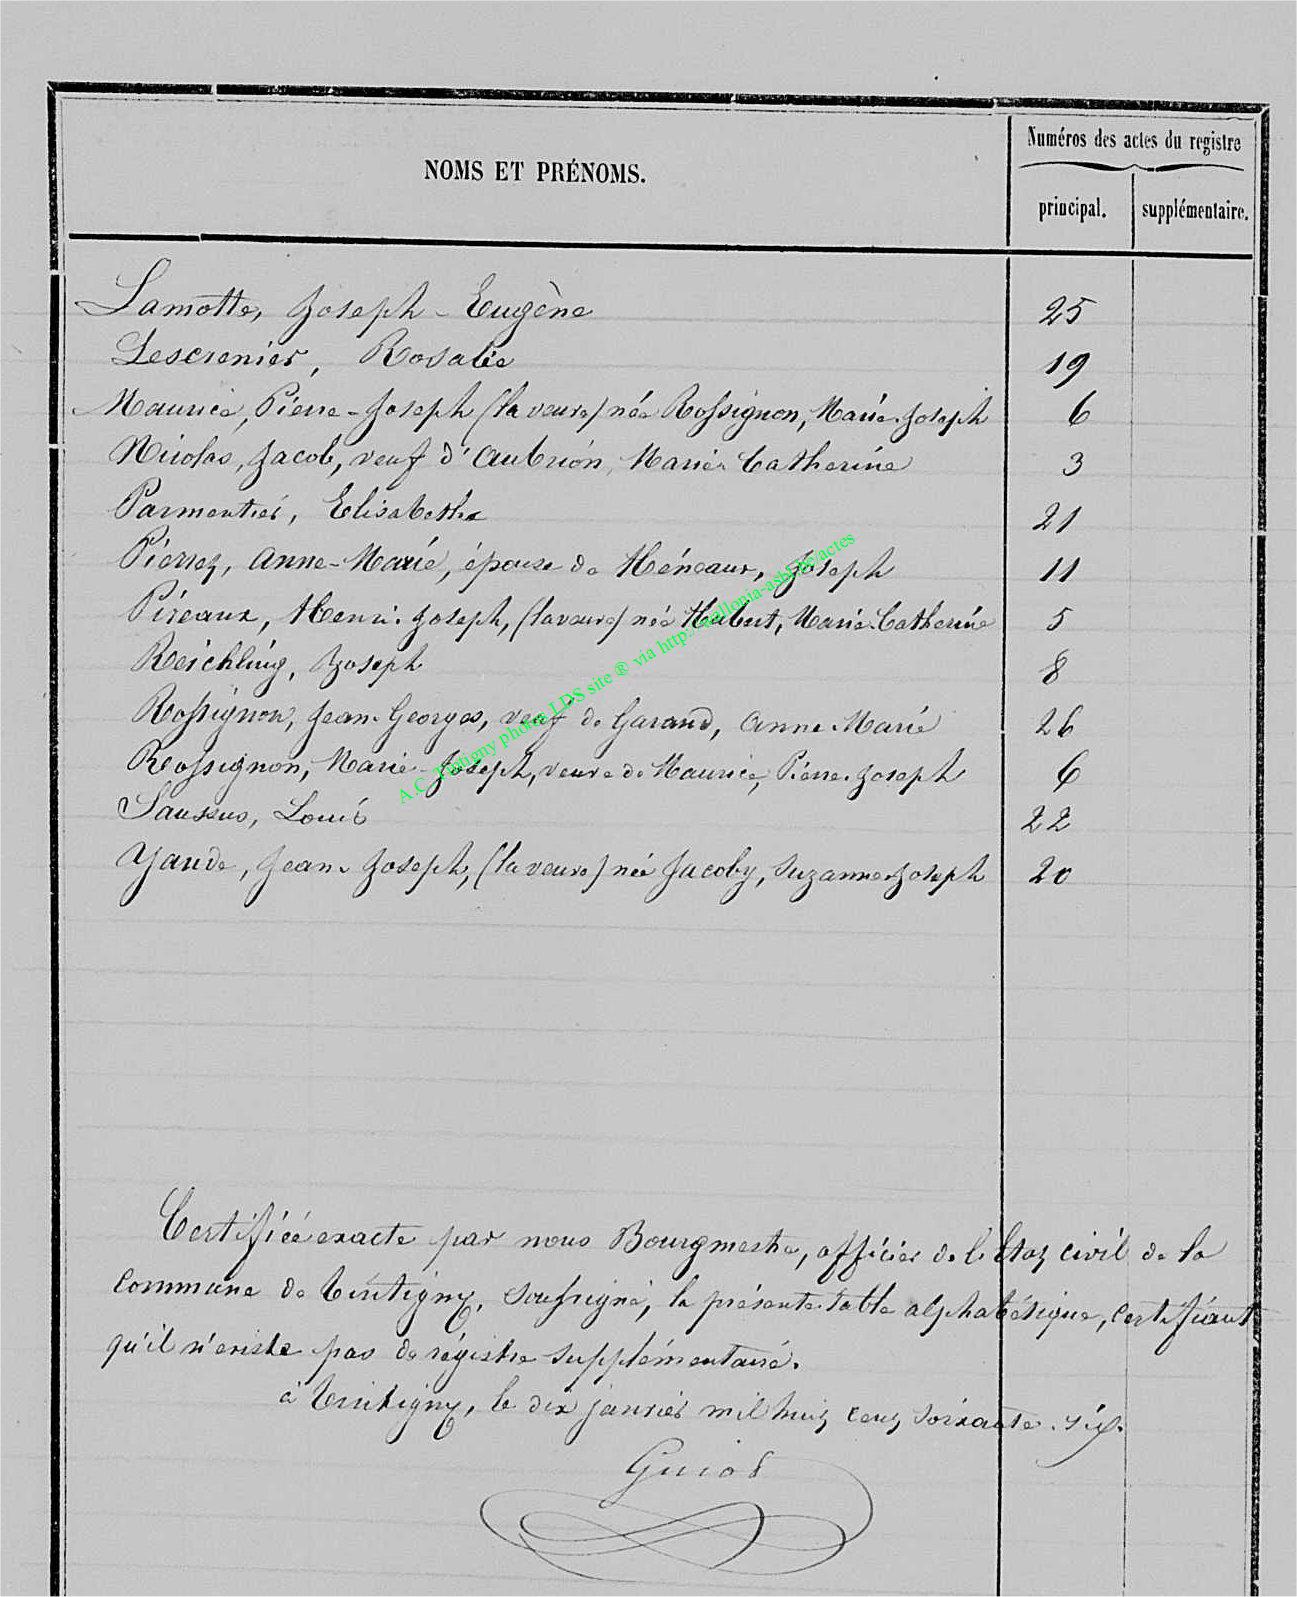 Numéros des actes du registre
NOMS ET PRÉNOMS.
principal. supplémentaire.
Lamotte, Joseph-Eugène 25
Lescrenier, Rosalie 19
Maurice, Pierre-Joseph (la veuve) née Rossignon, Marie-Joseph 6
Nicolas, Jacob, veuf d'Aubrion, Marie-Catherine 3
Parmentier, Elisabeth 21
Pierrez, Anne-Marie, épouse de Héneaux, Joseph 11
Pireaux, Henri-Joseph, (la veuve) née Hubert, Marie-Catherine 5
Reichling, Joseph 8
Rossignon, Jean-Georges, veuf de Garand, Anne-Marie 26
Rossignon, Marie-Joseph, veuve de Maurice, Pierre-Joseph 6
Saussus, Louis 22
Yande, Jean-Joseph, (la veuve) née Jacoby, Suzanne-Joseph 20
A.C. Tintigny photos LDS site ® via http://wallonia-asbl.be/actes
Certifiée exacte par nous Bourgmestre, officier de l'Etat civil de la
commune de Tintigny, soussigné, la présente table alphabétique, certifiant
qu'il n'existe pas de régistre supplémentaire.
à Tintigny, le dix janvier mil huit cent soixante-six.
Guiot